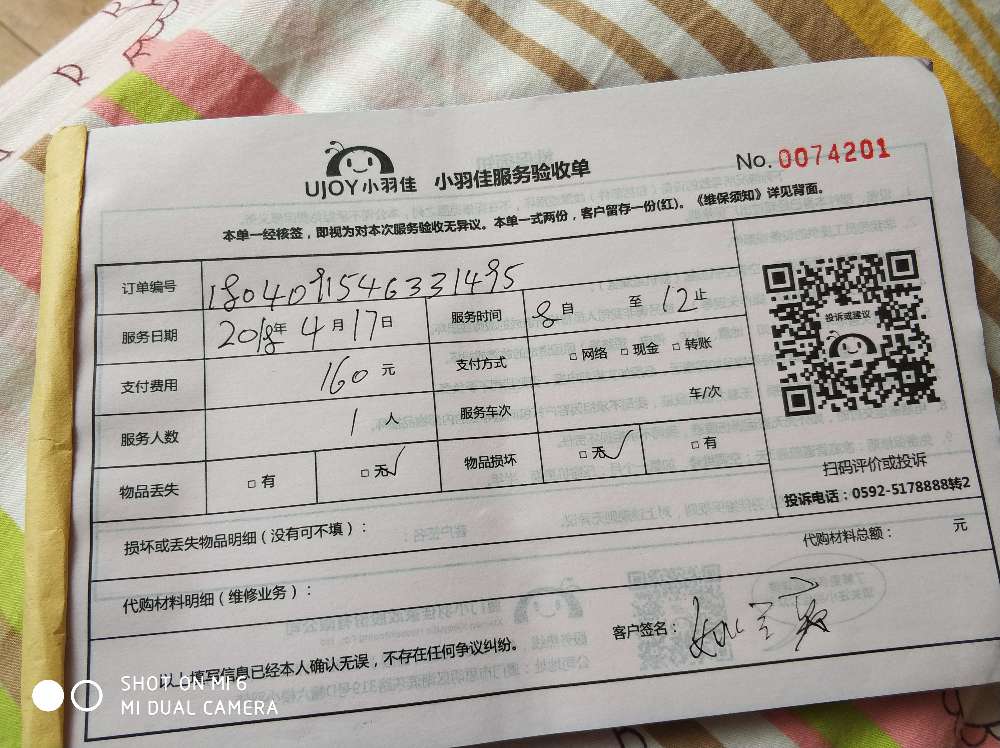 UJOY小羽佳 小羽佳服务验收单 No. 0074201
本单一经核签，即视为对本次服务验收无异议。本单一式两份，客户留存一份(红)。《维保须知》详见背面。
订单编号 1804091546331495
服务日期 2018年 4月17日 服务时间 8自 至12止
支付费用 160元 支付方式 □网络 □现金 □转账
服务人数 1人 服务车次 车/次
物品丢失 □有 □无√ 物品损坏 □无√ □有
投诉或建议
扫码评价或投诉
投诉电话：0592-5178888转2
损坏或丢失物品明细（没有可不填）：
代购材料总额： 元
代购材料明细（维修业务）：
客户签名：
以上填写信息已经本人确认无误，不存在任何争议纠纷。
SHOT ON MI 6
MI DUAL CAMERA